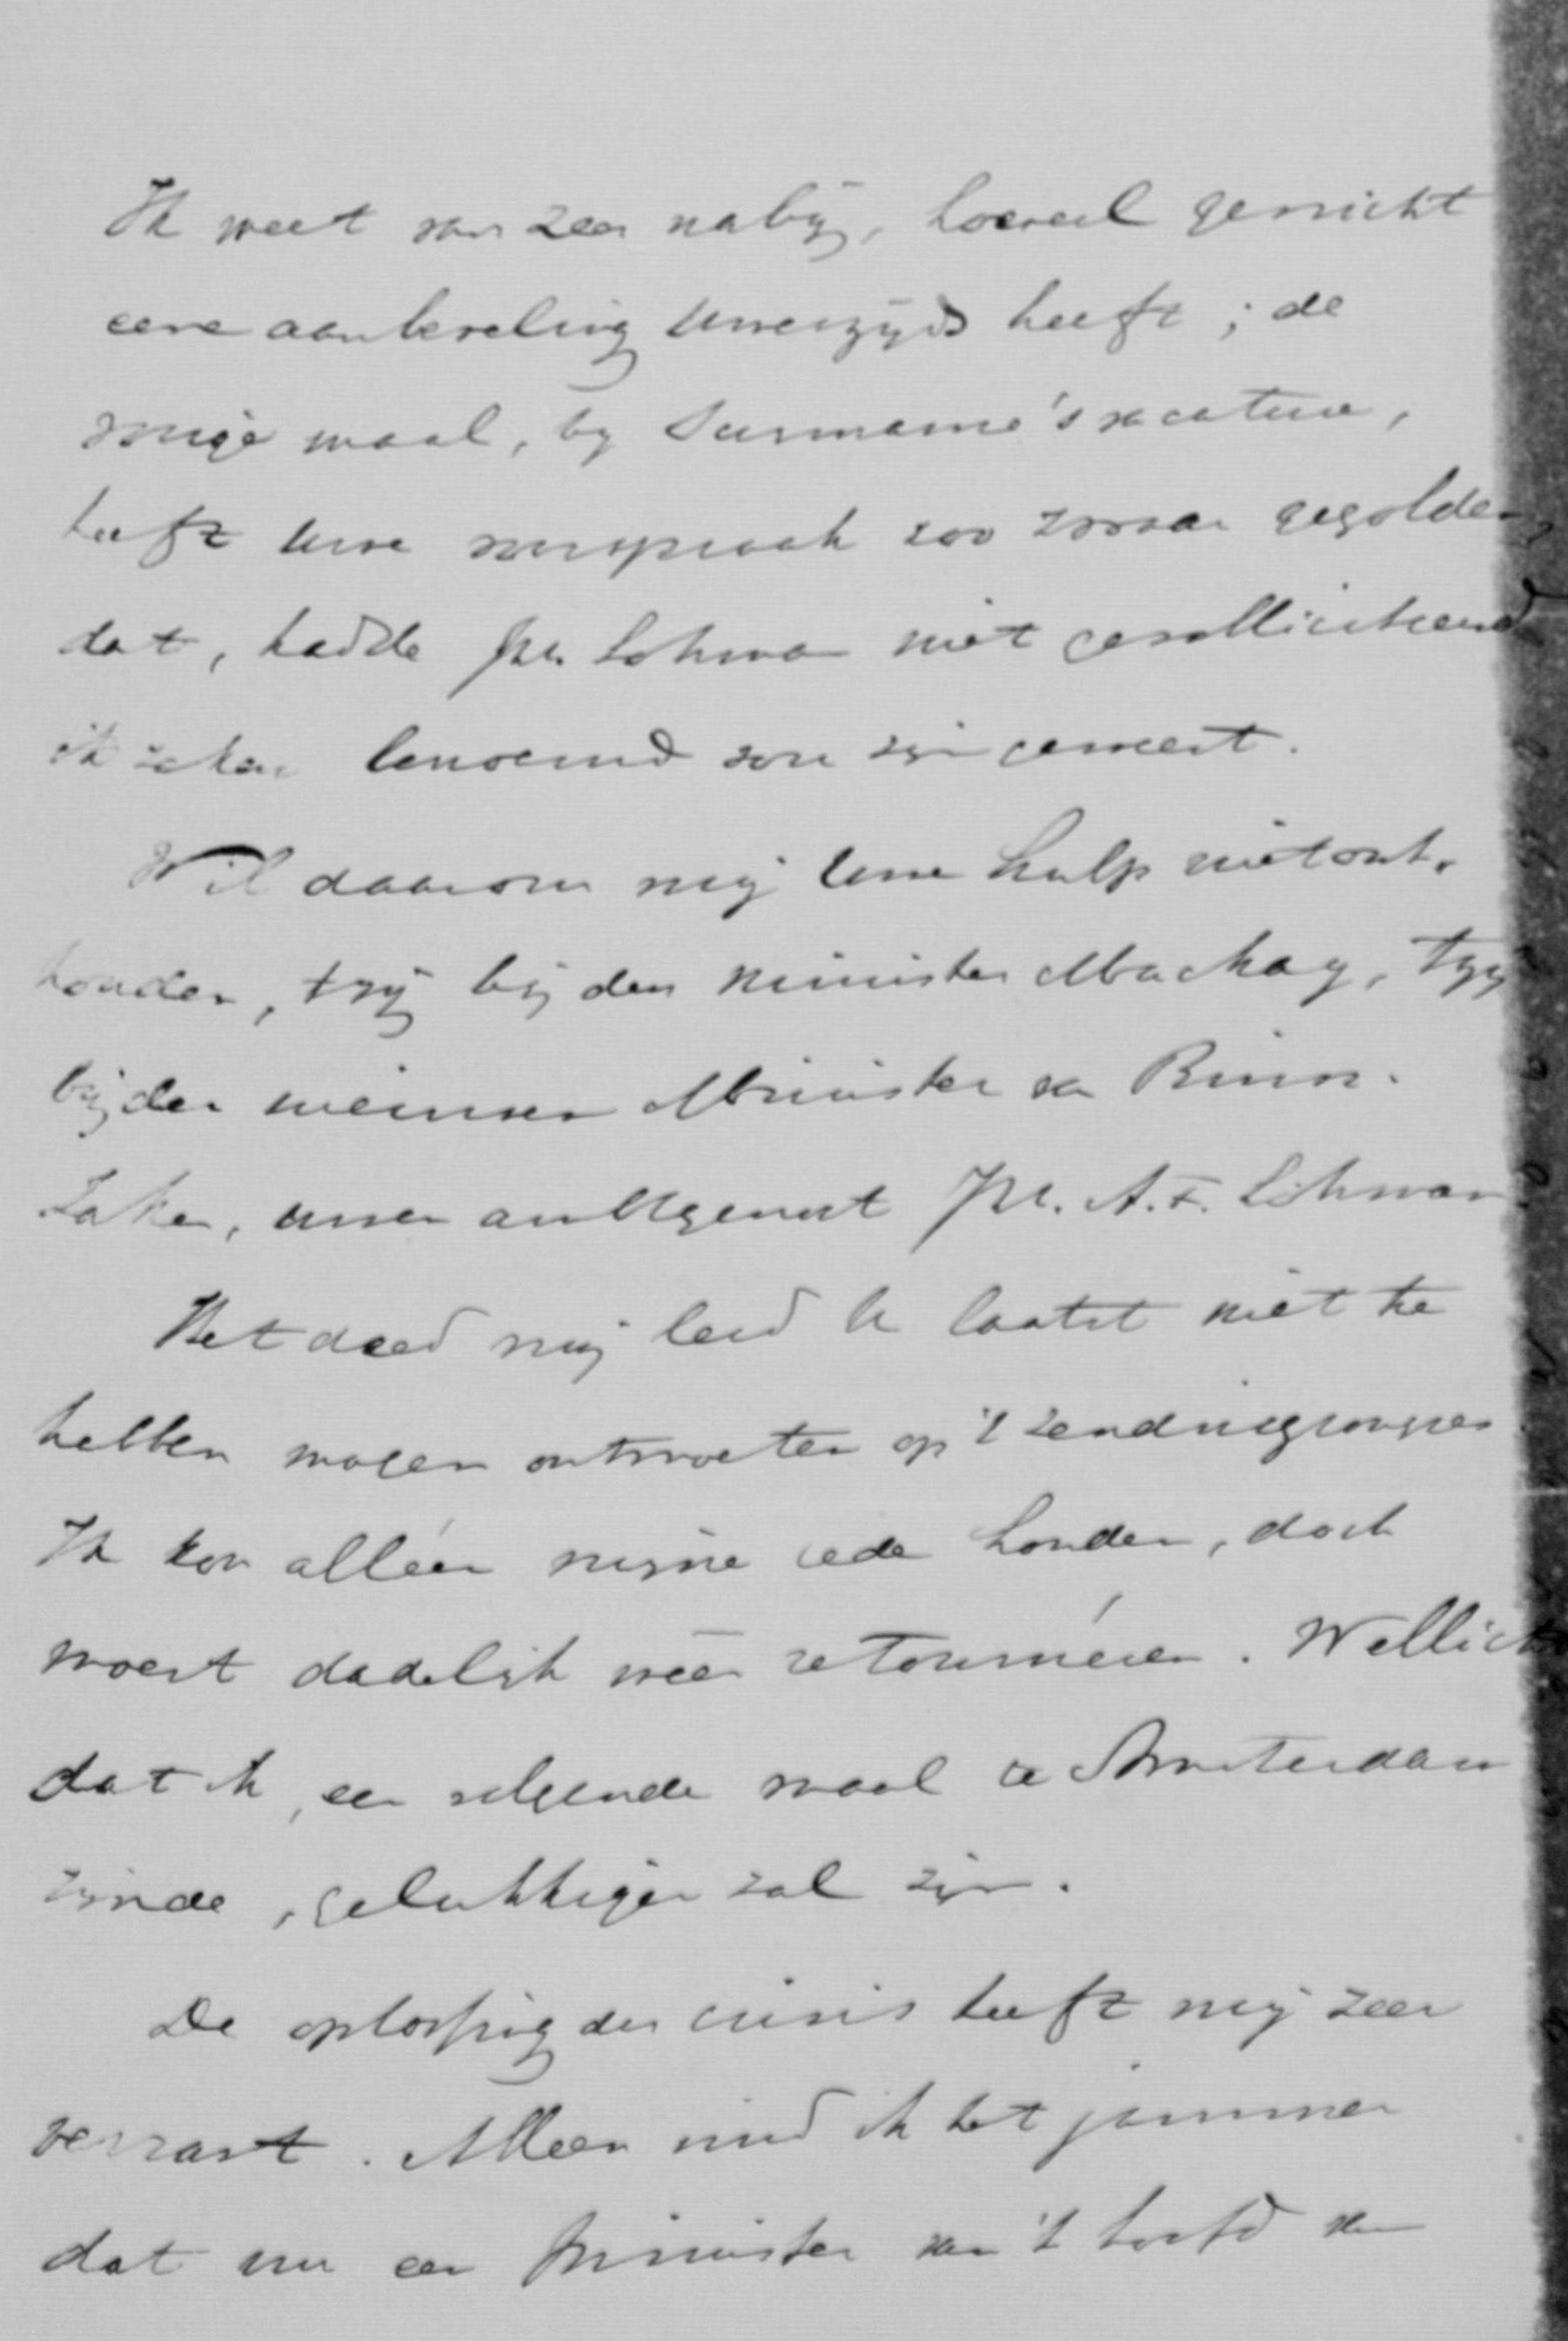 Ik weet van zeer nabij, hoeveel gewicht
eene aanbeveling Uwerzijds heeft; de
vorige maal, by Suriname's vacature,
heeft Uwe voorspraak zoo zwaar gegolden,
dat, hadde Mr. Lohman niet gesolliciteerd
ik zeker benoemd zou zijn geweest.
Wil daarom mij Uwe hulp niet ont-
houden, 't zij bij den minister Mackay, 't zij
bij den nieuwen Minister van Binn.
Zaken, uwen ambtgenoot Mr. A. F. Lohman
Het deed mij leed U laatst niet te
hebben mogen ontmoeten op 't Zendingscongres
Ik kon alléén mijne rede houden, doch
moest dadelijk weêr retournéren. Wellicht
dat ik, een volgende maal te Amsterdam
zijnde, gelukkiger zal zijn.
De oplossing der crisis heeft mij zeer
verrast. Alleen vind ik het jammer
dat nu een Minister van 't hoofd van